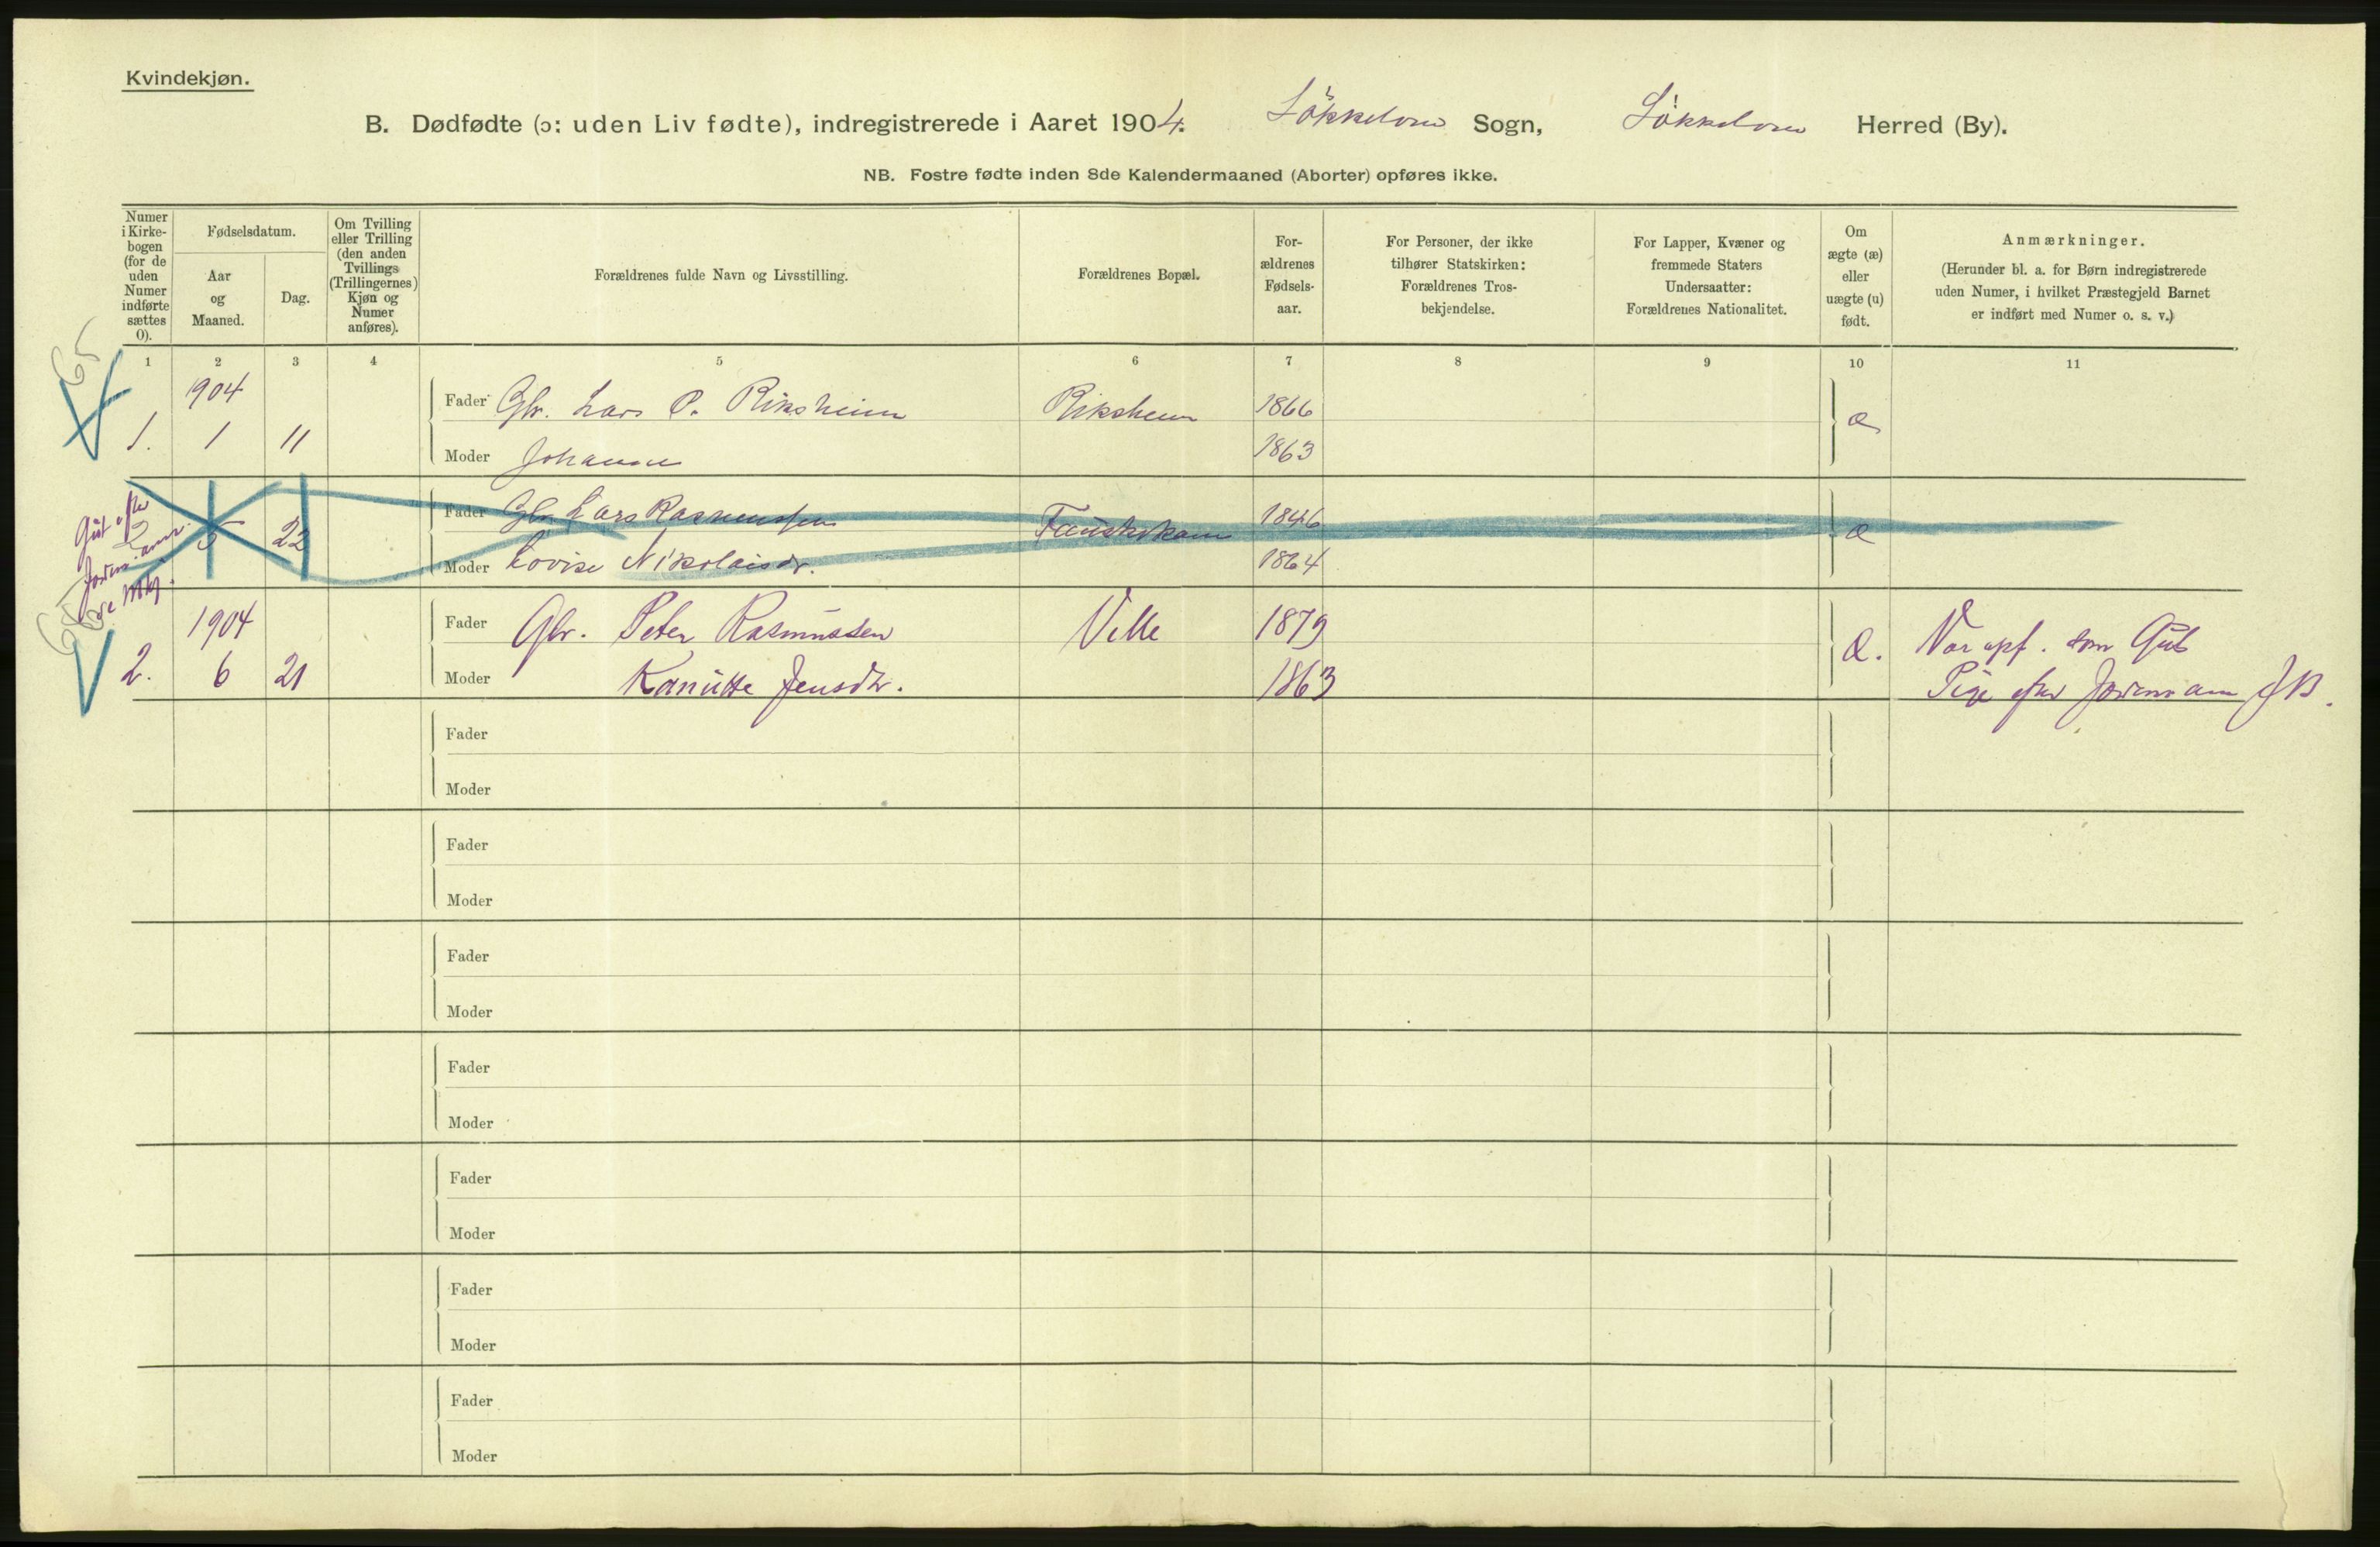 Kvindekjøn.
B. Dødfødte (ɔ: uden Liv fødte), indregistrerede i Aaret 1904. Søkkelven Sogn, Søkkelven Herred (By).
NB. Fostre fødte inden 8de Kalendermaaned (Aborter) opføres ikke.
Numer i Kirke-bogen (for de uden Numer indførte sættes 0).
Fødselsdatum.
Aar og Maaned.
Dag.
Om Tvilling eller Trilling (den anden Tvillings (Trillingernes) Kjøn og Numer anføres).
Forældrenes fulde Navn og Livsstilling.
Forældrenes Bopæl.
For-ældrenes Fødsels-aar.
For Personer, der ikke tilhører Statskirken: Forældrenes Tros-bekjendelse.
For Lapper, Kvæner og fremmede Staters Undersaatter: Forældrenes Nationalitet.
Om ægte (æ) eller uægte (u) født.
Anmærkninger.
(Herunder bl. a. for Børn indregistrerede uden Numer, i hvilket Præstegjeld Barnet er indført med Numer o. s. v.)
1 2 3 4 5 6 7 8 9 10 11
65
1904
Fader Gbr. Lars P. Riksheim Riksheim 1866
1. 1 11 æ
Moder Johanne 1863
Gut efter
Fader Gbr Lars Rasmussen 1846
5 22 æ
Moder Lovise Nikolaisdr. 1864
65
1904
Fader Gbr. Peter Rasmussen Velle 1879 Var opf. som Gut
2. 6 21 æ.
Moder Kanutte Jensdtr. 1863 Pige efter JB.
Fader
Moder
Fader
Moder
Fader
Moder
Fader
Moder
Fader
Moder
Fader
Moder
Fader
Moder